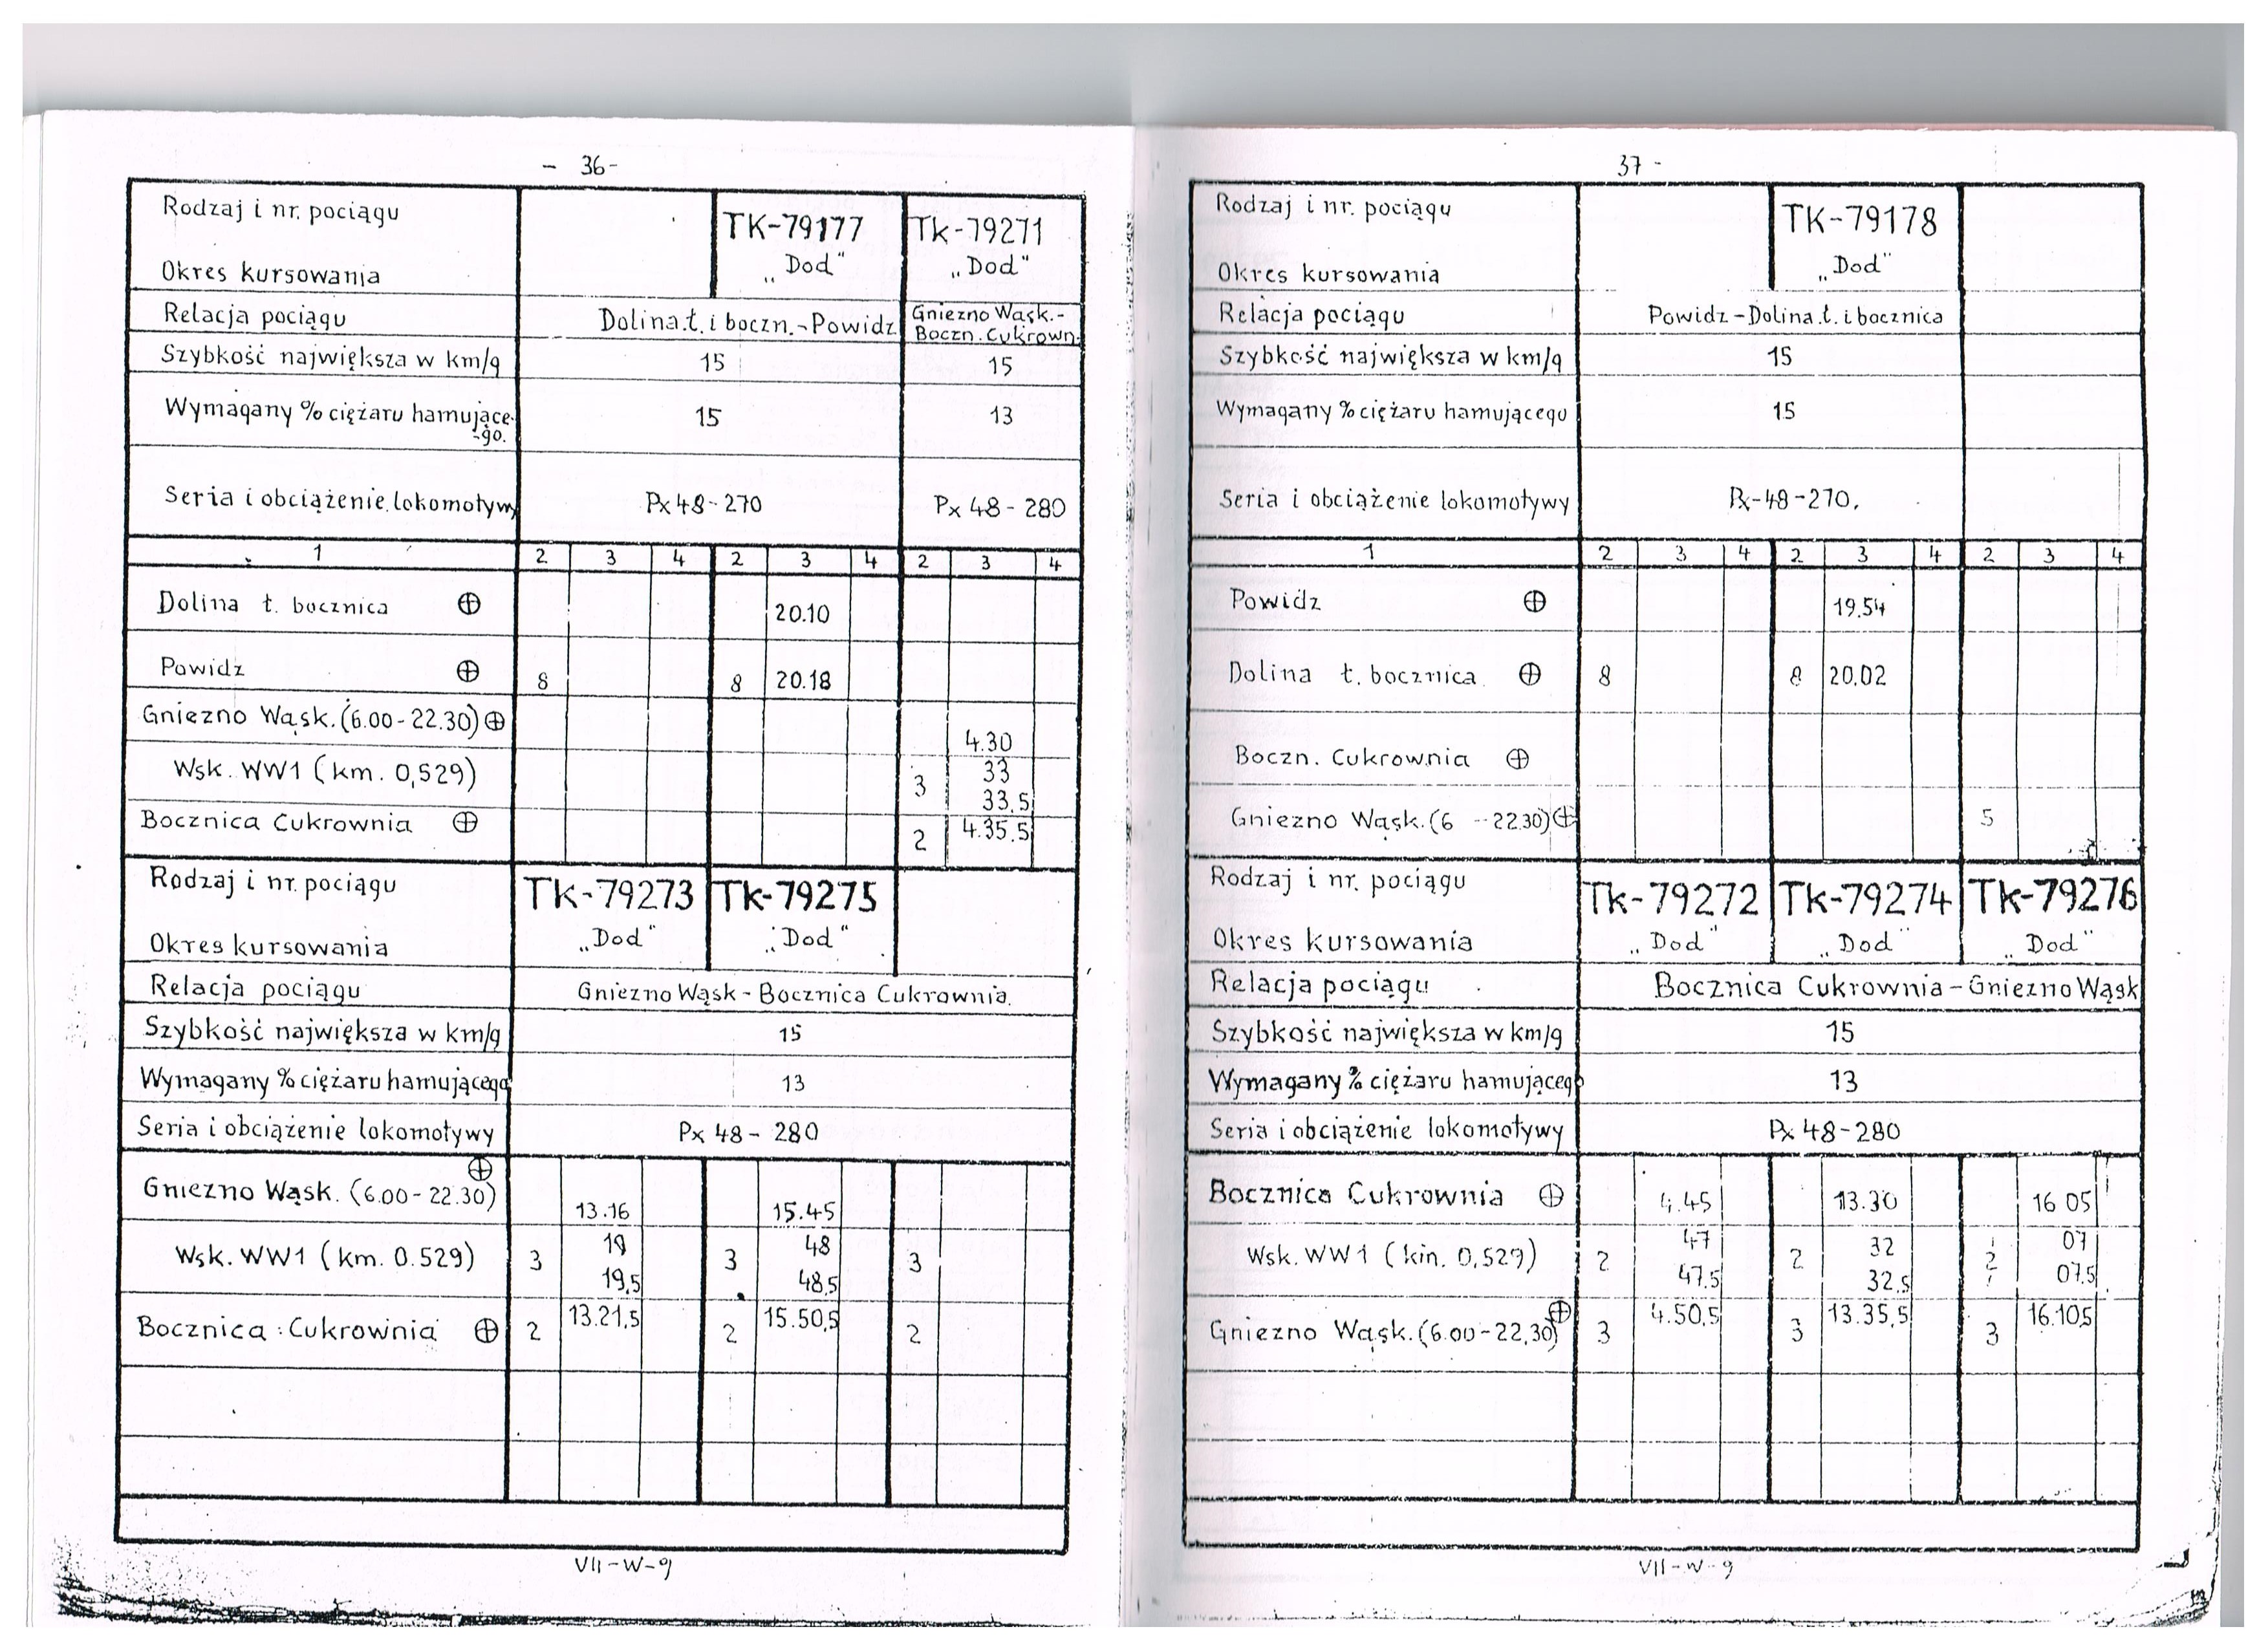 - 36-
Rodzaj i nr. pociągu TK-79177 Tk-79271
Okres kursowania „Dod" „Dod"
Relacja pociągu Dolina.t. i boczn.-Powidz Gniezno Wąsk.-
Boczn. Cukrown.
Szybkość największa w km/g 15 15
Wymagany % ciężaru hamujące- 15 13
-go.
Seria i obciążenie lokomotywy Px 48-270 Px 48-280
1 2 3 4 2 3 4 2 3 4
Dolina t. bocznica ⊕ 20.10
Powidz ⊕ 8 8 20.18
Gniezno Wąsk. (6.00-22.30) ⊕ 4.30
Wsk. WW1 (km. 0,529) 3 33
33.5
Bocznica Cukrownia ⊕ 2 4.35.5
Rodzaj i nr. pociągu TK-79273 Tk-79275
Okres kursowania „Dod" „Dod"
Relacja pociągu Gniezno Wąsk - Bocznica Cukrownia.
Szybkość największa w km/g 15
Wymagany % ciężaru hamującego 13
Seria i obciążenie lokomotywy Px 48-280
Gniezno Wąsk. (6.00-22.30) ⊕ 13.16 15.45
Wsk. WW1 (km. 0.529) 3 19 3 48 3
19,5 48,5
Bocznica Cukrownia ⊕ 2 13.21,5 2 15.50,5 2
VII-W-9
37 -
Rodzaj i nr. pociągu TK-79178
Okres kursowania „Dod"
Relacja pociągu Powidz-Dolina.t. i bocznica
Szybkość największa w km/g 15
Wymagany % ciężaru hamującego 15
Seria i obciążenie lokomotywy Px-48-270.
1 2 3 4 2 3 4 2 3 4
Powidz ⊕ 19.54
Dolina t. bocznica ⊕ 8 8 20.02
Boczn. Cukrownia ⊕
Gniezno Wąsk. (6 -- 22.30) ⊕ 5
Rodzaj i nr. pociągu Tk-79272 Tk-79274 Tk-79276
Okres kursowania „Dod" „Dod" „Dod"
Relacja pociągu Bocznica Cukrownia-Gniezno Wąsk
Szybkość największa w km/g 15
Wymagany % ciężaru hamującego 13
Seria i obciążenie lokomotywy Px 48-280
Bocznica Cukrownia ⊕ 4.45 13.30 16 05
Wsk. WW1 (km. 0,529) 2 47 2 32 2 07
47.5 32.5 07.5
Gniezno Wąsk. (6.00-22,30) ⊕ 3 4.50,5 3 13.35,5 3 16.10,5
VII-W-9